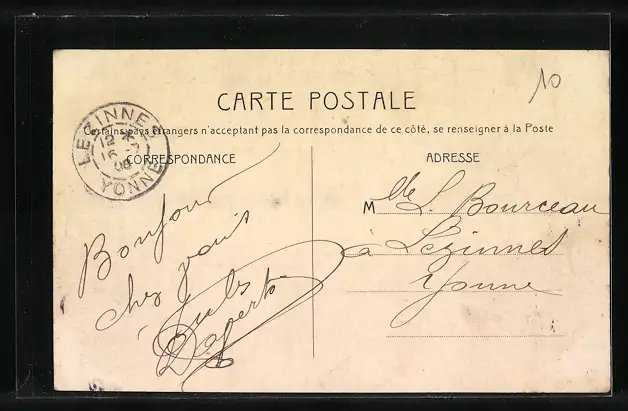 10
CARTE POSTALE
Certains pays étrangers n'acceptant pas la correspondance de ce côté, se renseigner à la Poste
LEZINNES
12
16
08
YONNE
CORRESPONDANCE
Bonjour
chez
ADRESSE
Mlle L. Bourceau
à Lézinnes
Yonne